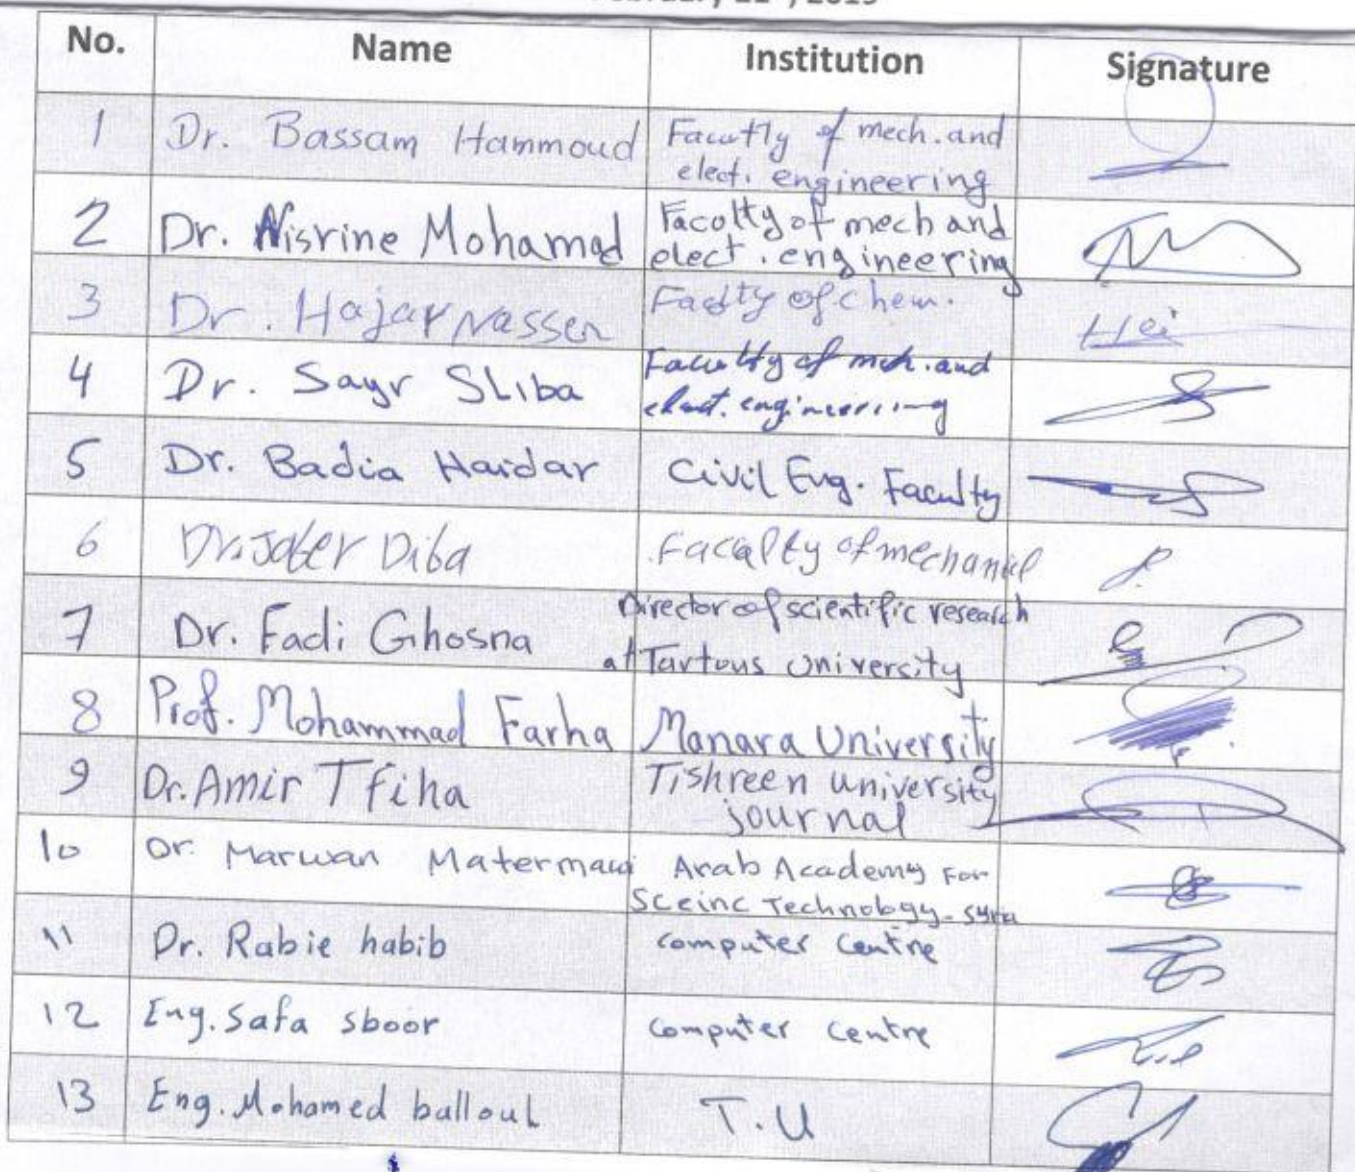 No. Name Institution Signature
1 Dr. Bassam Hammoud Facutly of mech. and
elect. engineering
2 Dr. Nisrine Mohamad Facolty of mech and
elect. engineering
3 Dr. Hajar Nasser Faclty of chem.
4 Dr. Sayr Sliba Faculty of mch. and
elect. engineering
5 Dr. Badia Haidar Civil Eng. Faculty
6 Dr. Jaber Diba Facalty of mechanical
7 Dr. Fadi Ghosna Director of scientific research
at Tartous University
8 Prof. Mohammad Farha Manara University
9 Dr. Amir Tfiha Tishreen university
journal
10 Dr. Marwan Matermawi Arab Academy For
Sceinc Technology - Syria
11 Dr. Rabie habib computer centre
12 Eng. Safa sboor computer centre
13 Eng. Mohamed balloul T.U